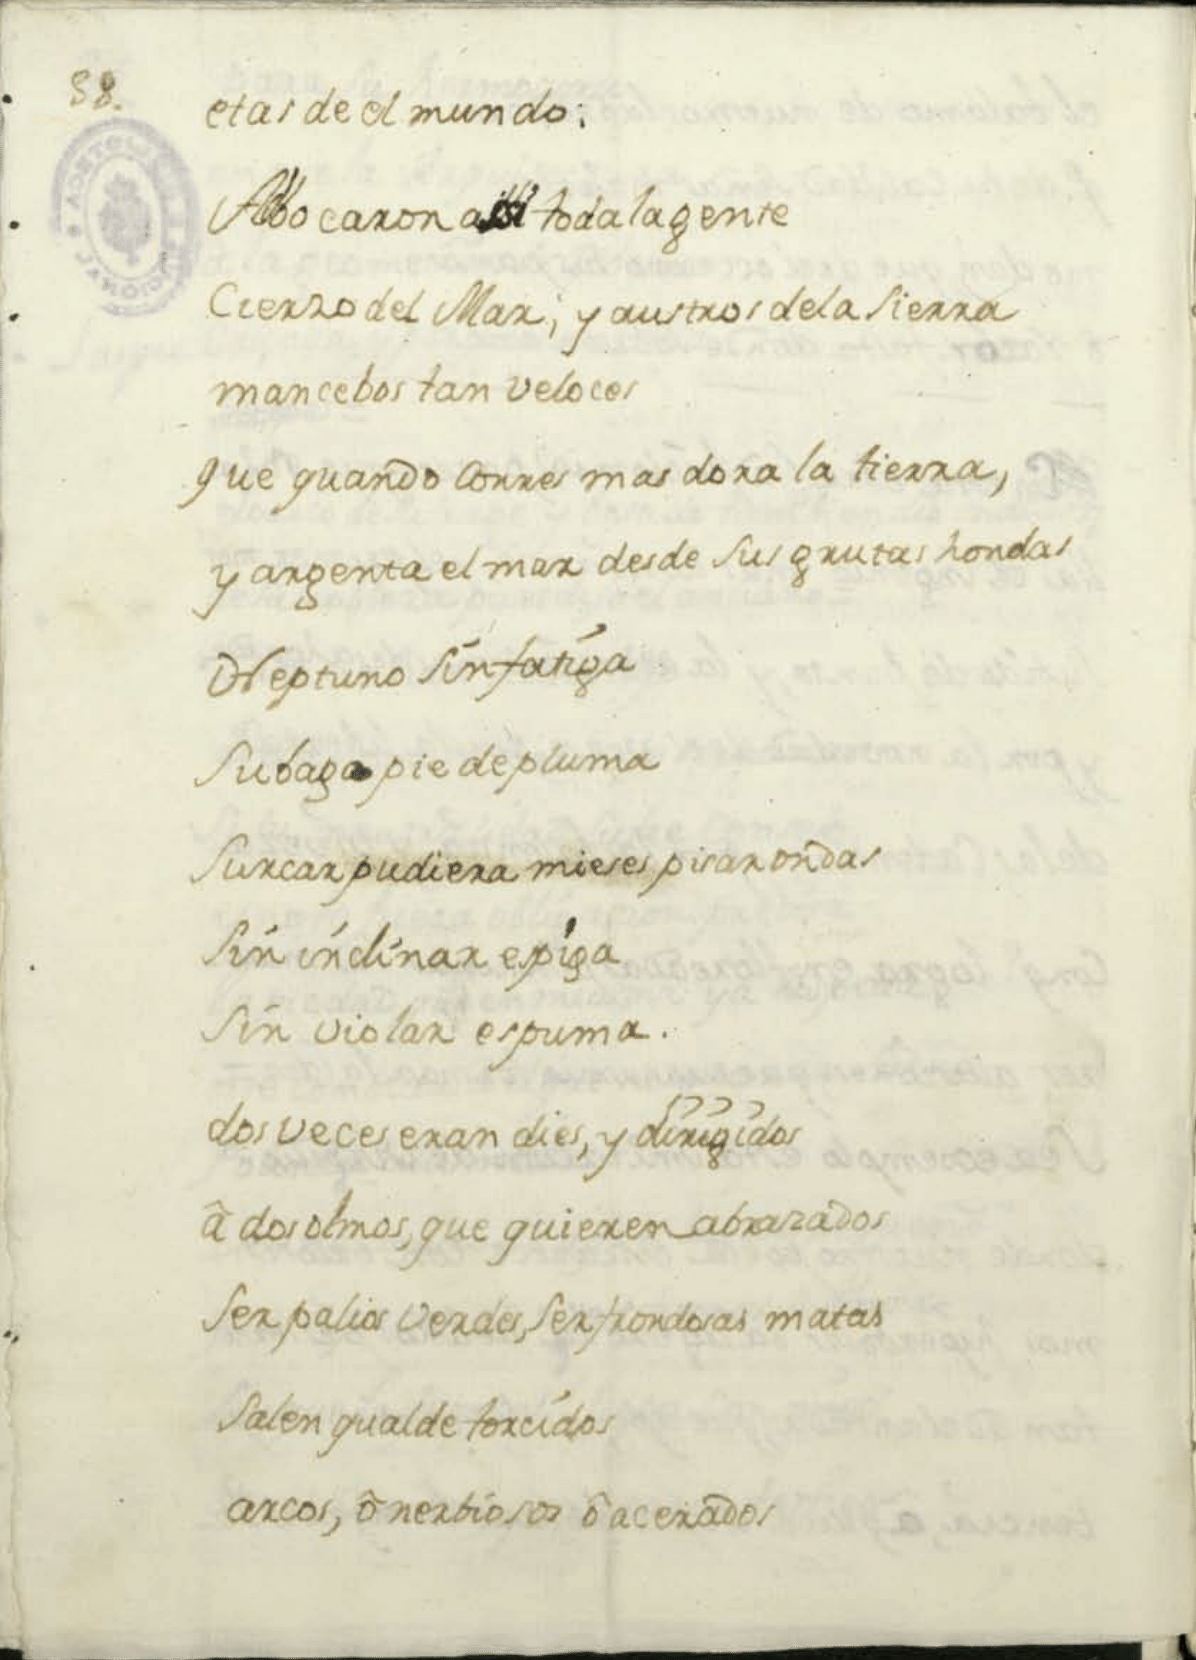 58.
etas de el mundo:
Abocaron asi toda la gente
Cierzo del Mar, y austros de la Sierra
mancebos tan veloces
que quando Corres mas dora la tierra,
y argenta el mar desde Sus grutas hondas
Neptuno Sin fatiga
Su baga pie de pluma
Surcar pudiera mieses, pisar ondas
Sin inclinar espiga
Sin violar espuma.
dos veces eran dies, y dirigidos
â dos olmos, que quieren abrazados
Ser palios Verdes, Ser frondosas matas
Salen qual de torcidos
arcos, ô nerbiosos ô acerados